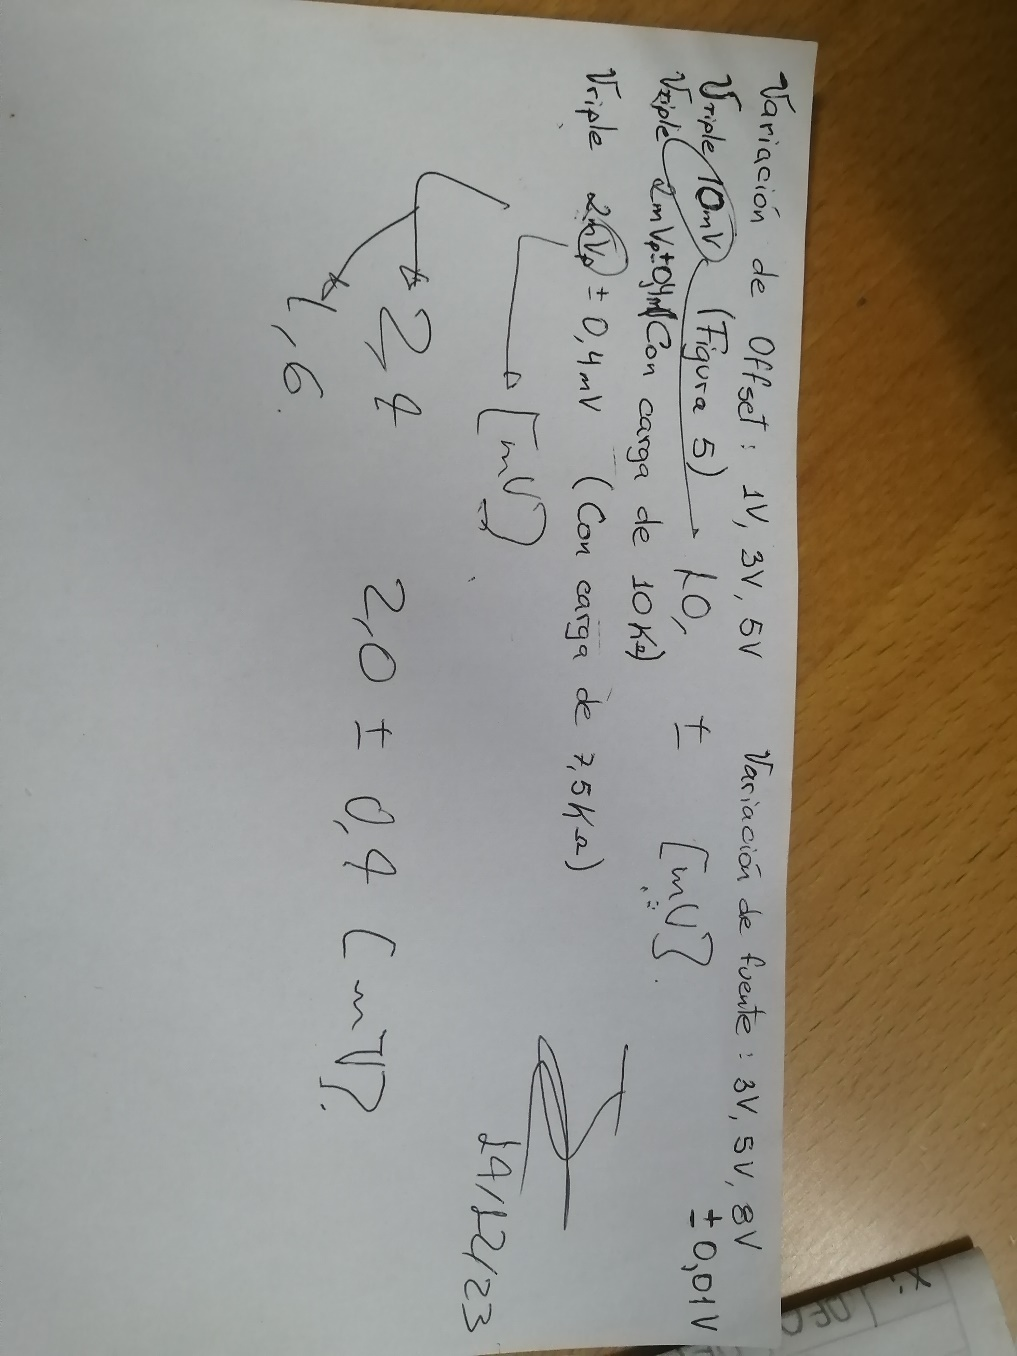 Variación de Offset: 1V, 3V, 5V Variación de fuente: 3V, 5V, 8V
± 0,01V
Vriple 10mV (Figura 5) 10, ± [mV].
Vriple 2mVp±0,4mV(Con carga de 10KΩ)
Vriple 2mVp ± 0,4mV (Con carga de 7,5KΩ)
[mV]
2,4
1,6
2,0 ± 0,4 [mV].
14/12/23